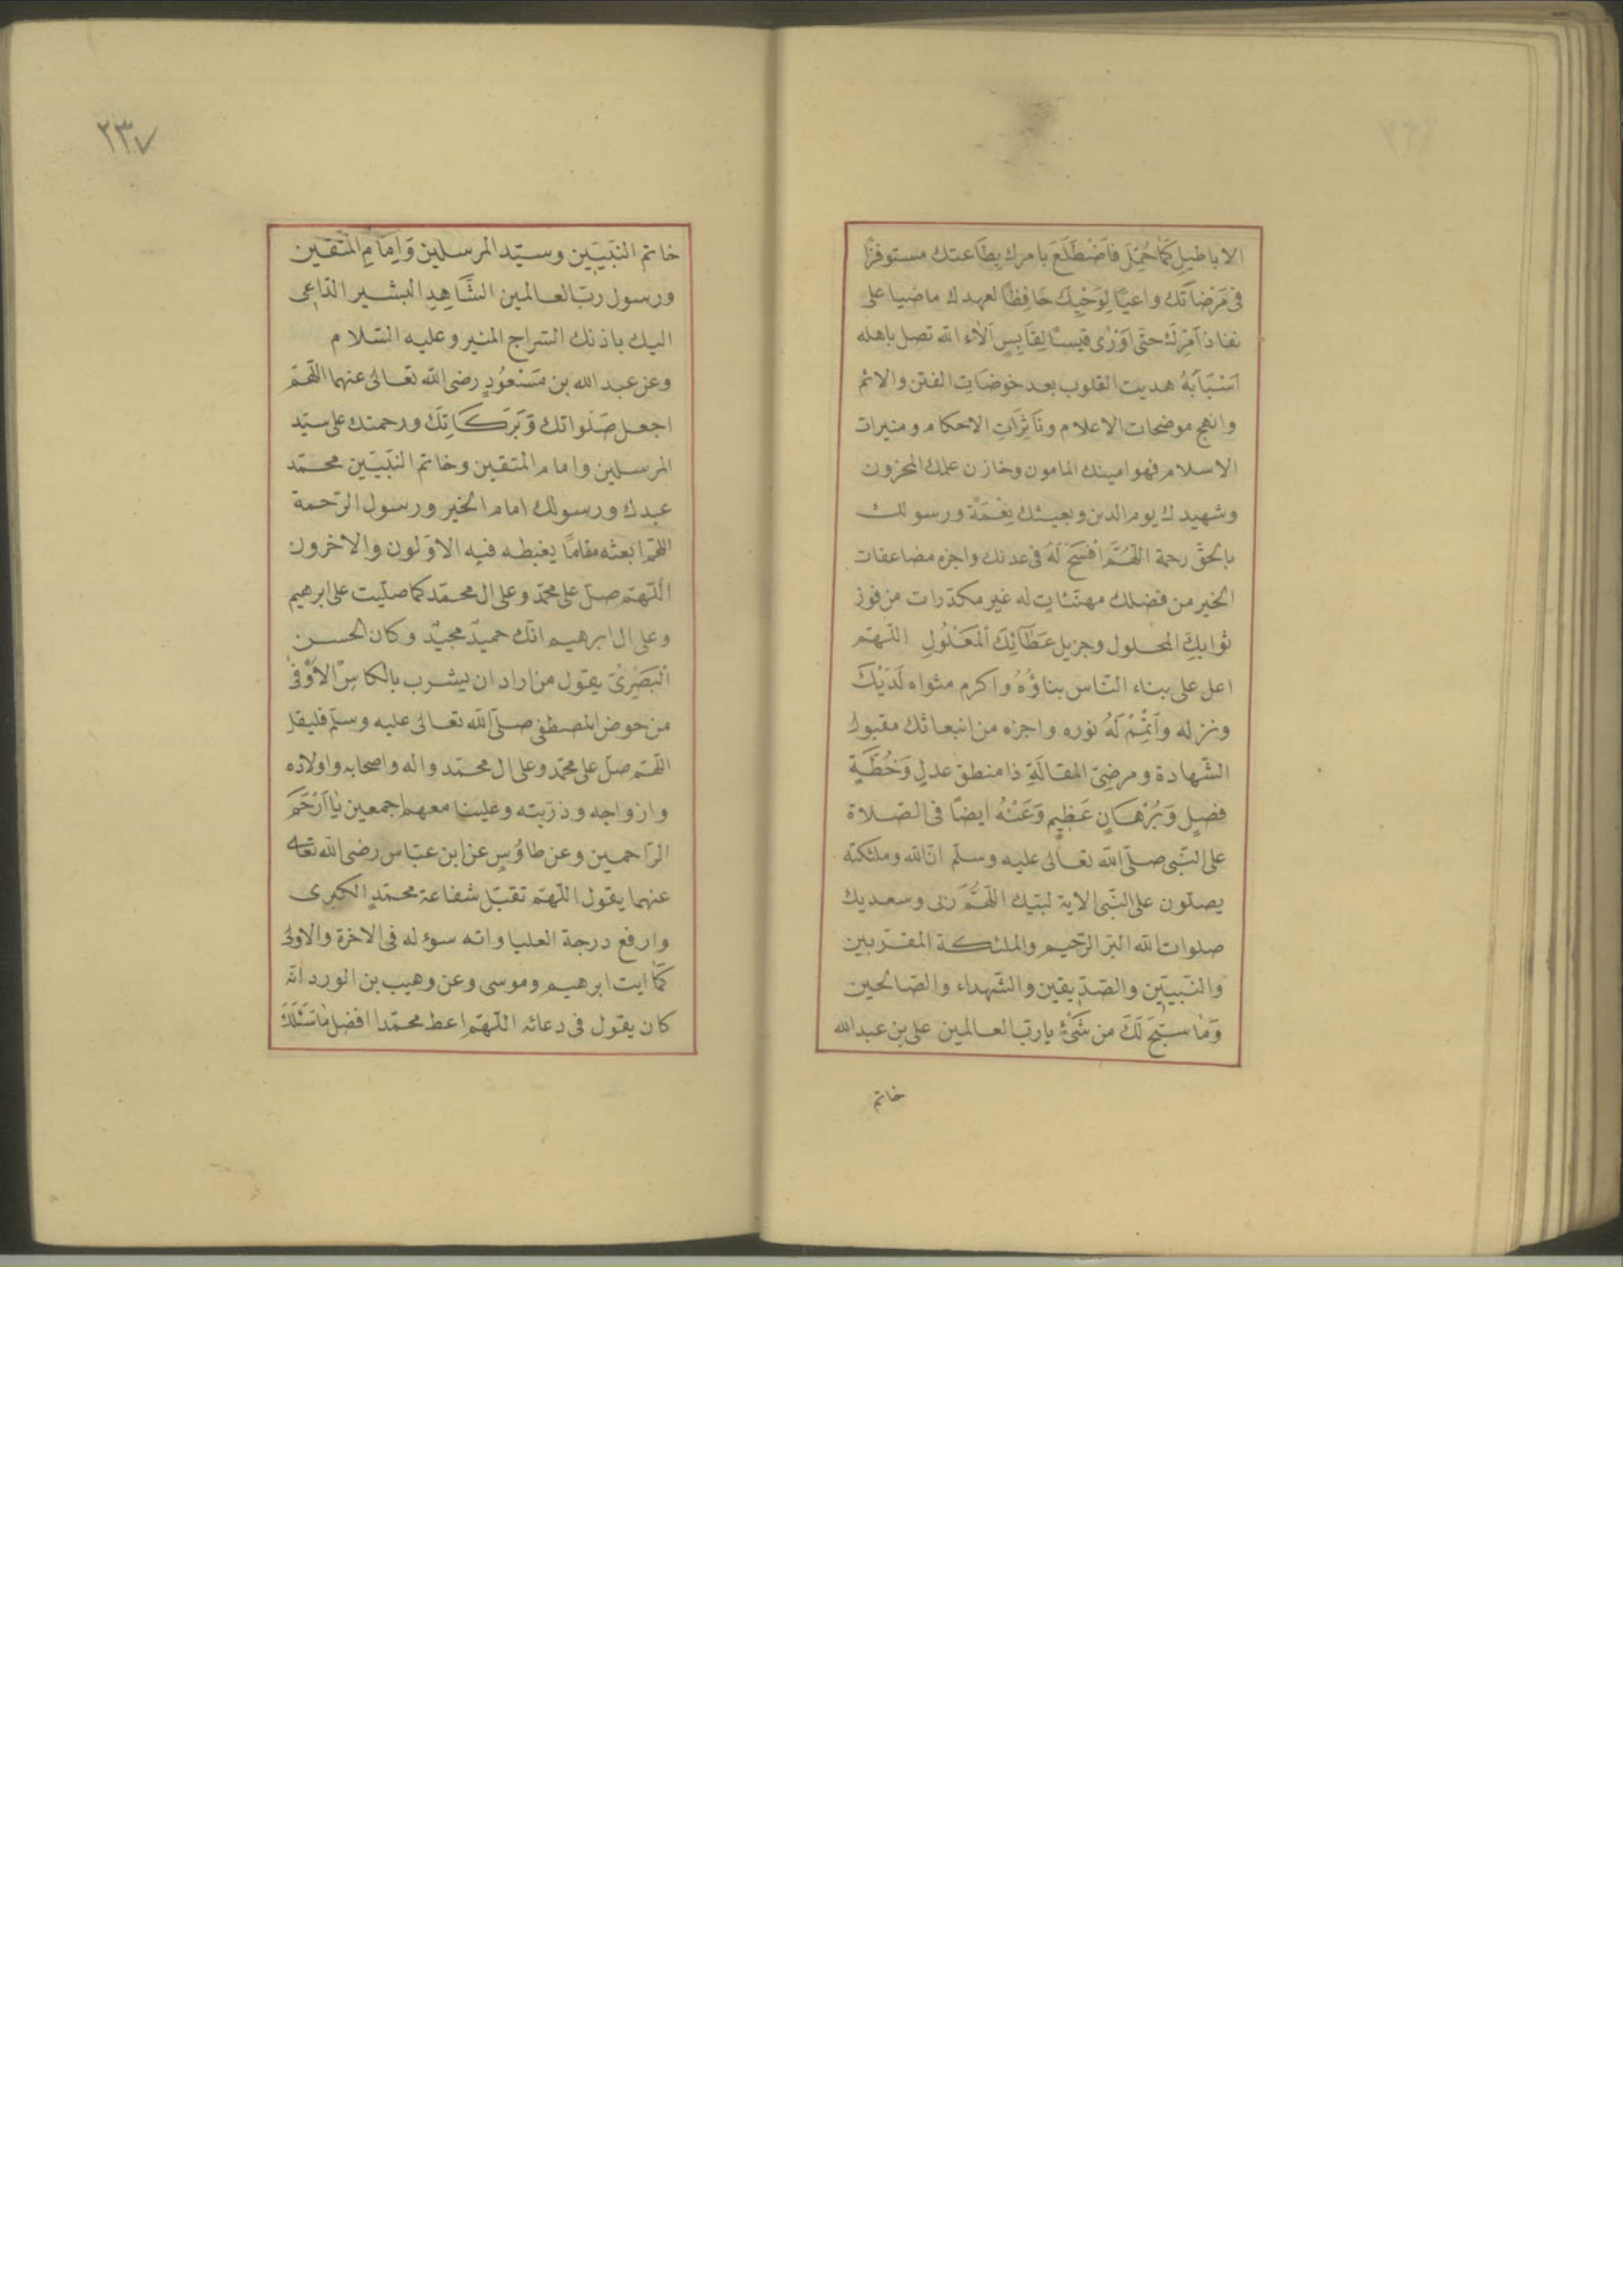 الاباطيل كَمَا حُمِّلَ فَاضْطَلَعَ بامرك بِطَاعتك مستوفزًا
فى مَرْضَاتك واعيًا لِوَحْيِكَ حَافِظًا لعهدك ماضيا على
نفاذ اَمْرِكَ حتى اَوْرٰى قبسًا لِقَابِسٍ اٰلاۤءُ الله تصل باهله
اَسْبَابَهُ هديت القلوب بعد خوضات الفتن والاثم
وانهج موضحات الاعلام ونَاثِرَاتِ الاحكام ومنيرات
الاسلام فهو امينك المامون وخازن علمك المخزون
وشهيدك يوم الدين وبعيثك نِعْمَة ورسولك
بالحقّ رحمة اللّهُمَّ افْسَحْ لَهُ فى عدنك واجزه مضاعفات
الخير من فضلك مهنّئات له غير مكدّرات من فوز
ثوابك المحلول وجزيل عَطَائِكَ اَلمَعْلُولِ اللّهمّ
اعل على بناء النّاس بناؤُهُ واكرم مثواه لَدَيْكَ
ونزله وَاَتْمِمْ لَهُ نوره واجزه من انبعاثك مقبول
الشّهادة ومرضىّ المقالَةِ ذا منطق عدل وَخُطَّةٍ
فصلٍ وَبُرْهَانٍ عَظِيمٍ وَعَنْهُ ايضًا فى الصّلاة
على النّبى صلّى الله تعالى عليه وسلّم انّ الله وملئكته
يصلّون على النّبى الاية لبّيك اللّهُمَّ رَبى وسعديك
صلوات الله البرّ الرّحيم والملئكة المقرّبين
والنّبيّين والصّدّيقين والشّهداء والصّالحين
وَمٰا سبّحَ لَكَ من شَىْءٍ يا ربّ العالمين على بن عبد الله
خاتم
٢٣٧
خاتم النّبيّين وسيّد المرسلين وَاِمَامِ المتّقين
ورسول ربّ العالمين الشَّاهِدِ البشير الدّاعى
اليك باذنك السّراج المنير وعليه السّلام
وعن عبد الله بن مَسْعُودٍ رضى الله تعالى عنهما اللّهمّ
اجعل صَلَواتك وَبَرَكَاتِكَ ورحمتك على سيّد
المرسلين وامام المتّقين وخاتم النّبيّين محمّد
عبدك ورسولك امام الخير ورسول الرّحمة
اللهمّ ابعثه مقامًا يغبطه فيه الاوّلون والاخرون
اللّهمّ صلّ على محمّد وعلى ال محمّد كما صلّيت على ابرهيم
وعلى ال ابرهيم انّك حميدٌ مجيدٌ وكان الحسن
الْبَصْرِىُّ يقول من اراد ان يشرب بالكاسِ الاَوْفٰى
من حوض المصطفى صلّى الله تعالى عليه وسلّم فليقل
اللّهمّ صلّ على محمّد وعلى ال محمّد واله واصحابه واولاده
وازواجه وذرّيته وعلينا معهم اجمعين يٰا اَرْحَمَ
الرّاحمين وعن طاوُسٍ عن ابن عبّاس رضى الله تعا
عنهما يقول اللّهمّ تقبّل شفاعة محمّدٍ الكبرى
وارفع درجة العليا واته سوءله فى الاخرة والاولى
كَمَا اتيت ابرهيم وموسى وعن وهيب بن الورد انّه
كان يقول فى دعائه اللّهمّ اعط محمّدا افضل مَا سَئَلَكَ